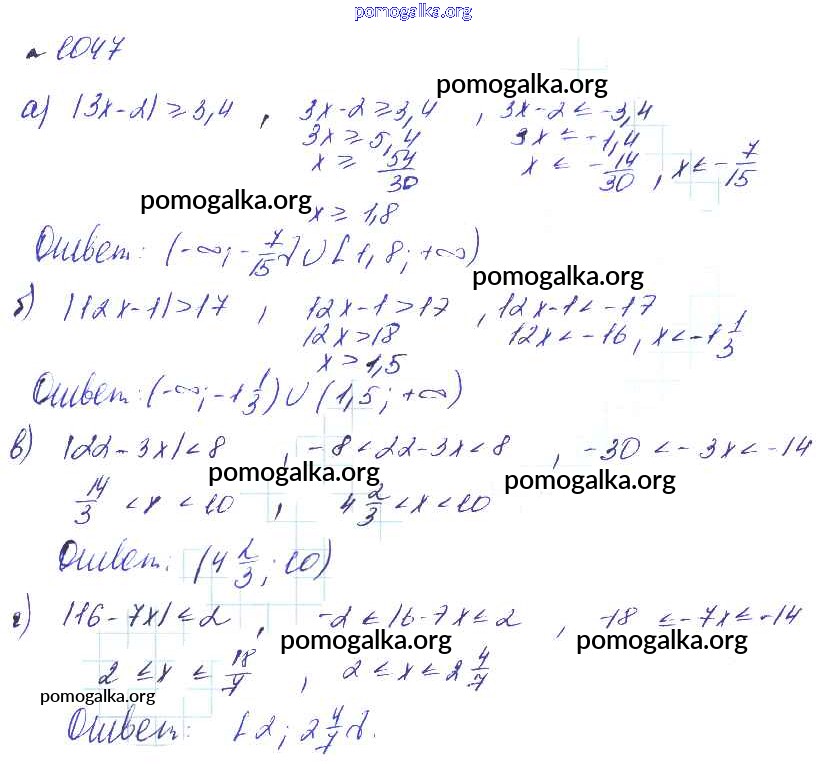 pomogalka.org
№ 1047
pomogalka.org
а) |3x-2| ≥ 3,4 , 3x-2 ≥ 3,4 , 3x-2 ≤ -3,4
3x ≥ 5,4 3x ≤ -1,4
x ≥ 54/30 x ≤ -14/30 , x ≤ -7/15
pomogalka.org
x ≥ 1,8
Ответ: (-∞; -7/15] ∪ [1,8; +∞)
pomogalka.org
б) |12x-1| > 17 , 12x-1 > 17 , 12x-1 < -17
12x > 18 12x < -16 , x < -1 1/3
x > 1,5
Ответ: (-∞; -1 1/3) ∪ (1,5; +∞)
в) |22-3x| < 8 , -8 < 22-3x < 8 , -30 < -3x < -14
pomogalka.org pomogalka.org
14/3 < x < 10 , 4 2/3 < x < 10
Ответ: (4 2/3; 10)
г) |16-7x| ≤ 2 , -2 ≤ 16-7x ≤ 2 , -18 ≤ -7x ≤ -14
pomogalka.org pomogalka.org
2 ≤ x ≤ 18/7 , 2 ≤ x ≤ 2 4/7
pomogalka.org
Ответ: [2; 2 4/7].